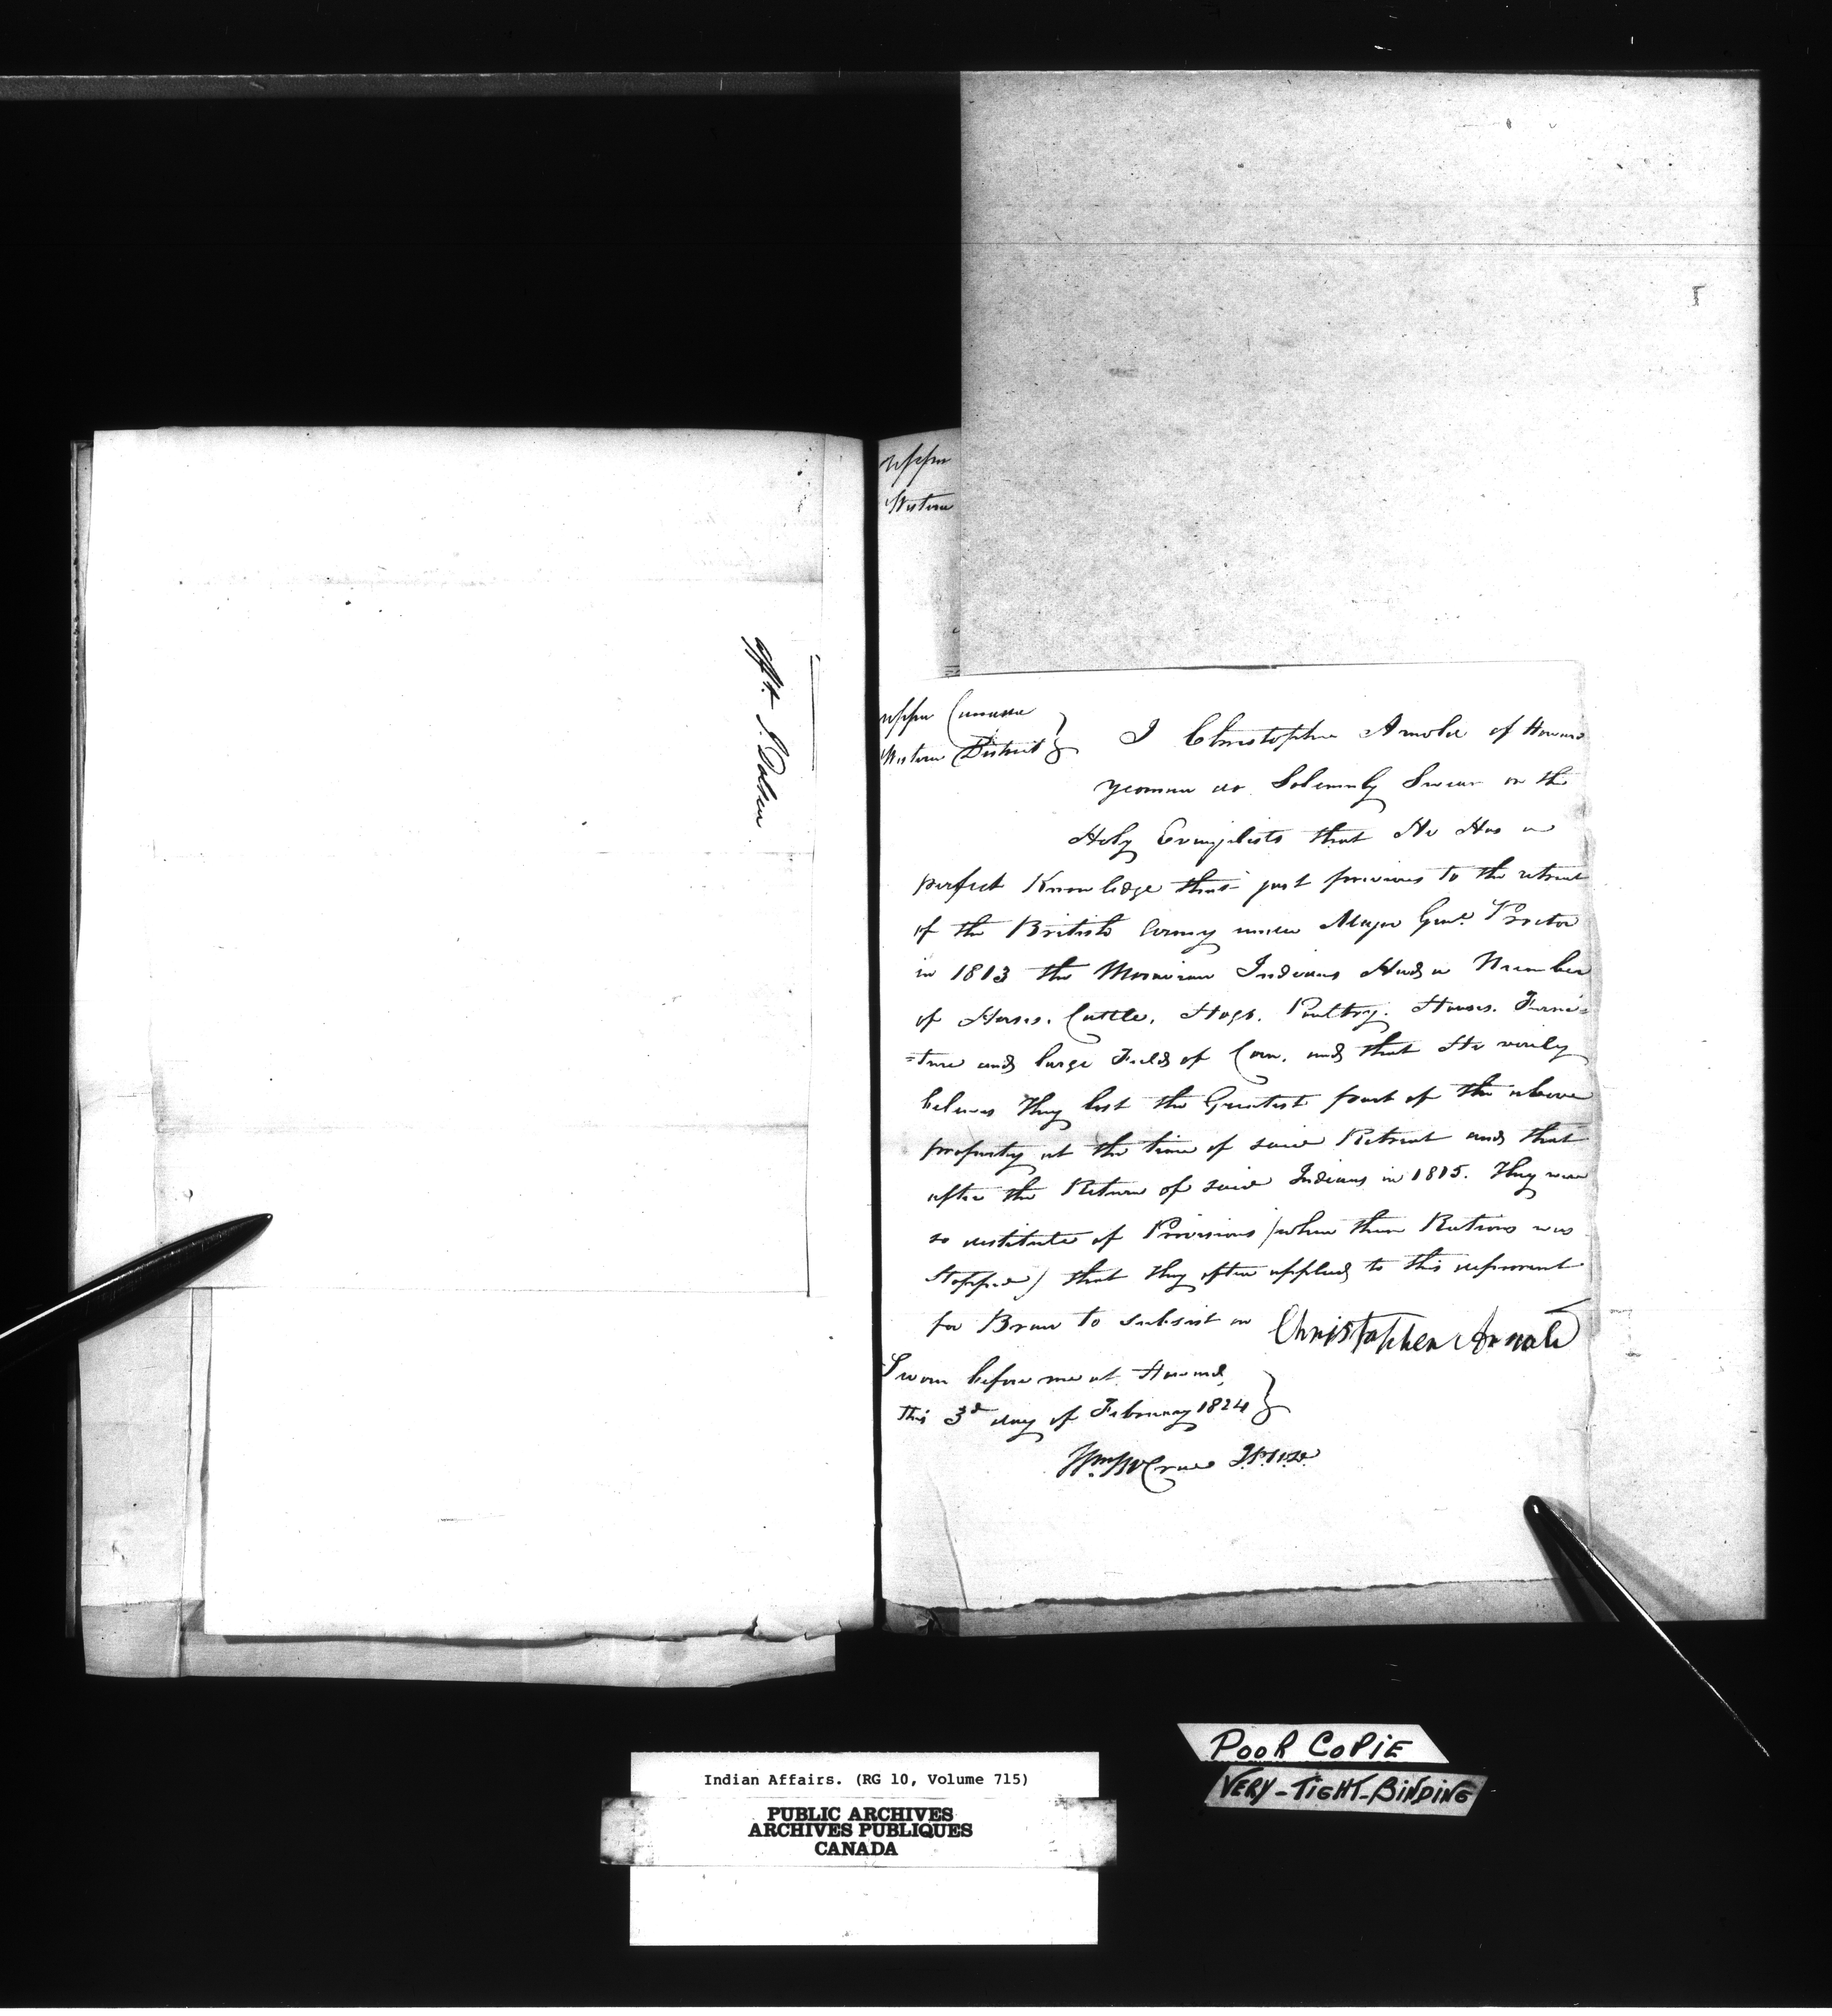 Afft. I. Dolsen
Upper
Western
Upper Canada
Western District }
I Christopher Arnold of Howard
yeoman do Solemnly Swear on the
Holy Evangelists that He Has a
perfect Knowledge that just previous to the retreat
of the British Army under Major Genl. Proctor
in 1813 the Moravian Indians Had a Number
of Horses. Cattle. Hogs. Poultry. Houses. Furni=
=ture and large Fields of Corn. and that He verily
believes They lost the Greatest part of the above
property at the time of said Retreat and that
after the Return of said Indians in 1815. They were
so destitute of Provisions (when their Rations was
Stopped) that they often applied to this deponent
for Bran to subsist on
Christopher Arnold
Sworn before me at Howard
this 3d day of February 1824 }
Wm McCrae J.P.W.D.
Indian Affairs. (RG 10, Volume 715)
PUBLIC ARCHIVES
ARCHIVES PUBLIQUES
CANADA
POOR COPIE
VERY-TIGHT-BINDING